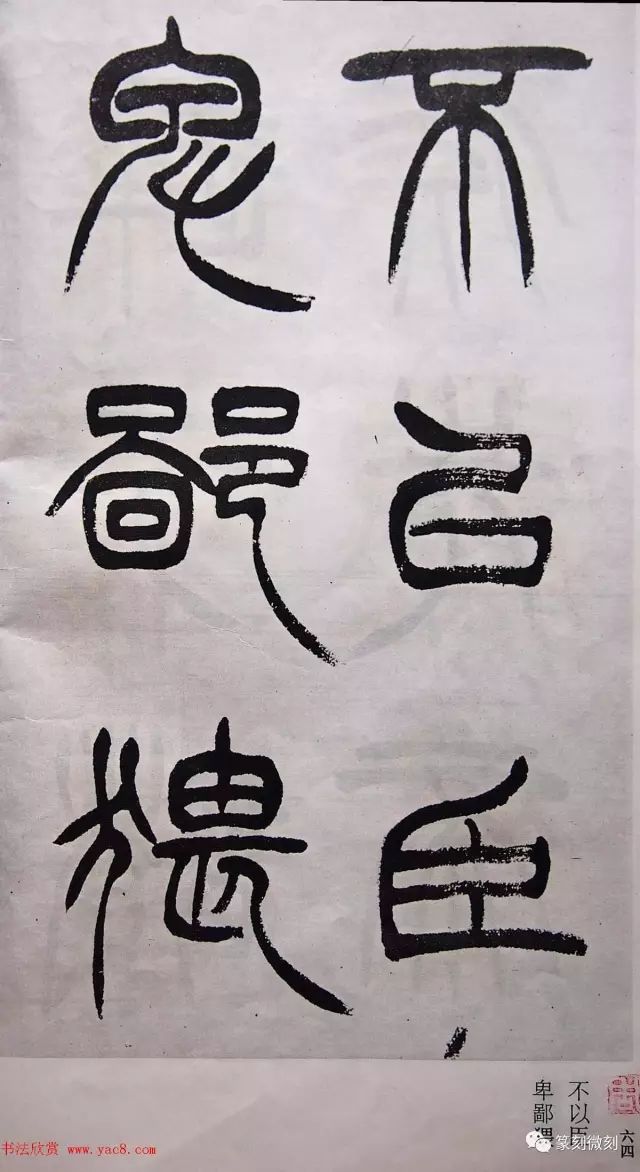 不以臣
卑鄙猥
不以臣
卑鄙猥
六四
篆刻微刻
书法欣赏 www.yac8.com